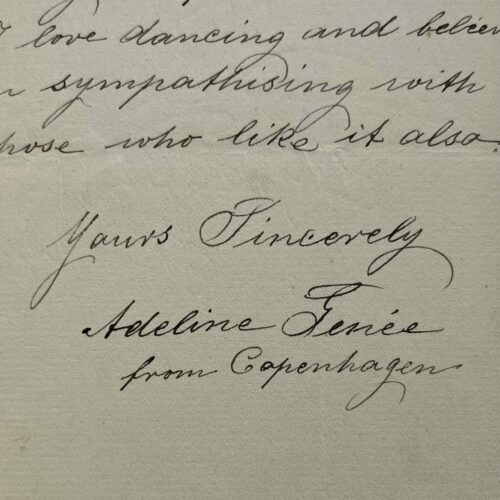 I love dancing and believe
sympathising with
those who like it also.
Yours Sincerely
Adeline Genée
from Copenhagen